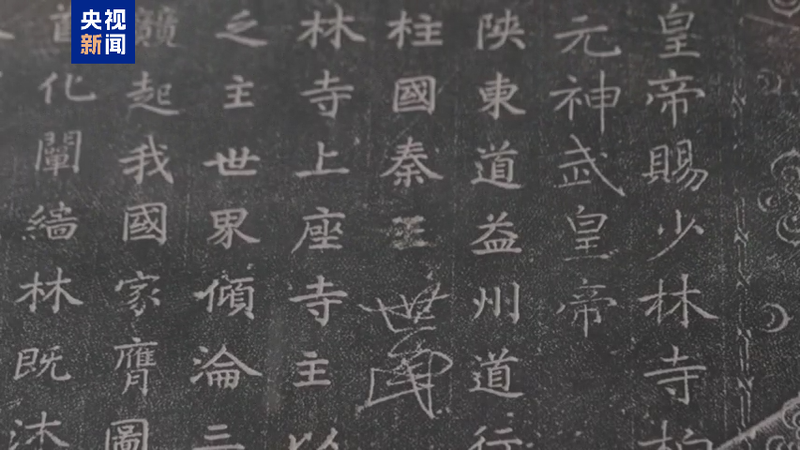 央视
新闻
皇帝賜少林寺柏
元神武皇帝
陝東道益州道行
柱國秦王世民
林寺上座寺主以
之主世界傾淪三
起我國家膺圖
化闡緇林既沐